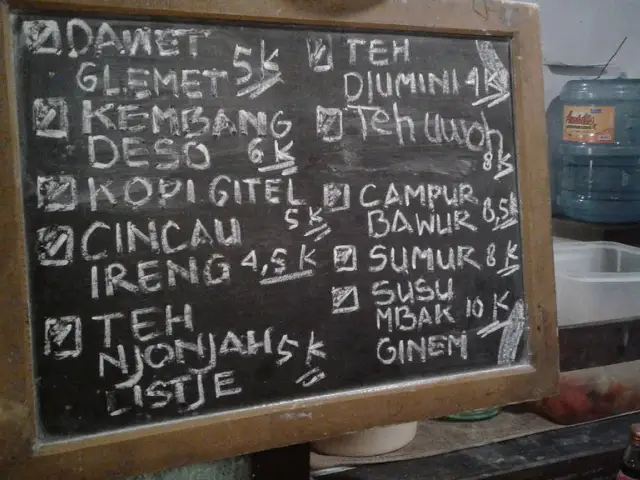 DAWET
GLEMET 5K
KEMBANG
DESO 6K
KOPI GITEL
5K
CINCAU
IRENG 4,5K
TEH
NJONJAH 5K
LISTJE
TEH
DJUMINI 4K
Teh Uwoh
8K
CAMPUR
BAWUR 8,5K
SUMUR 8K
SUSU
MBAK 10K
GINEM